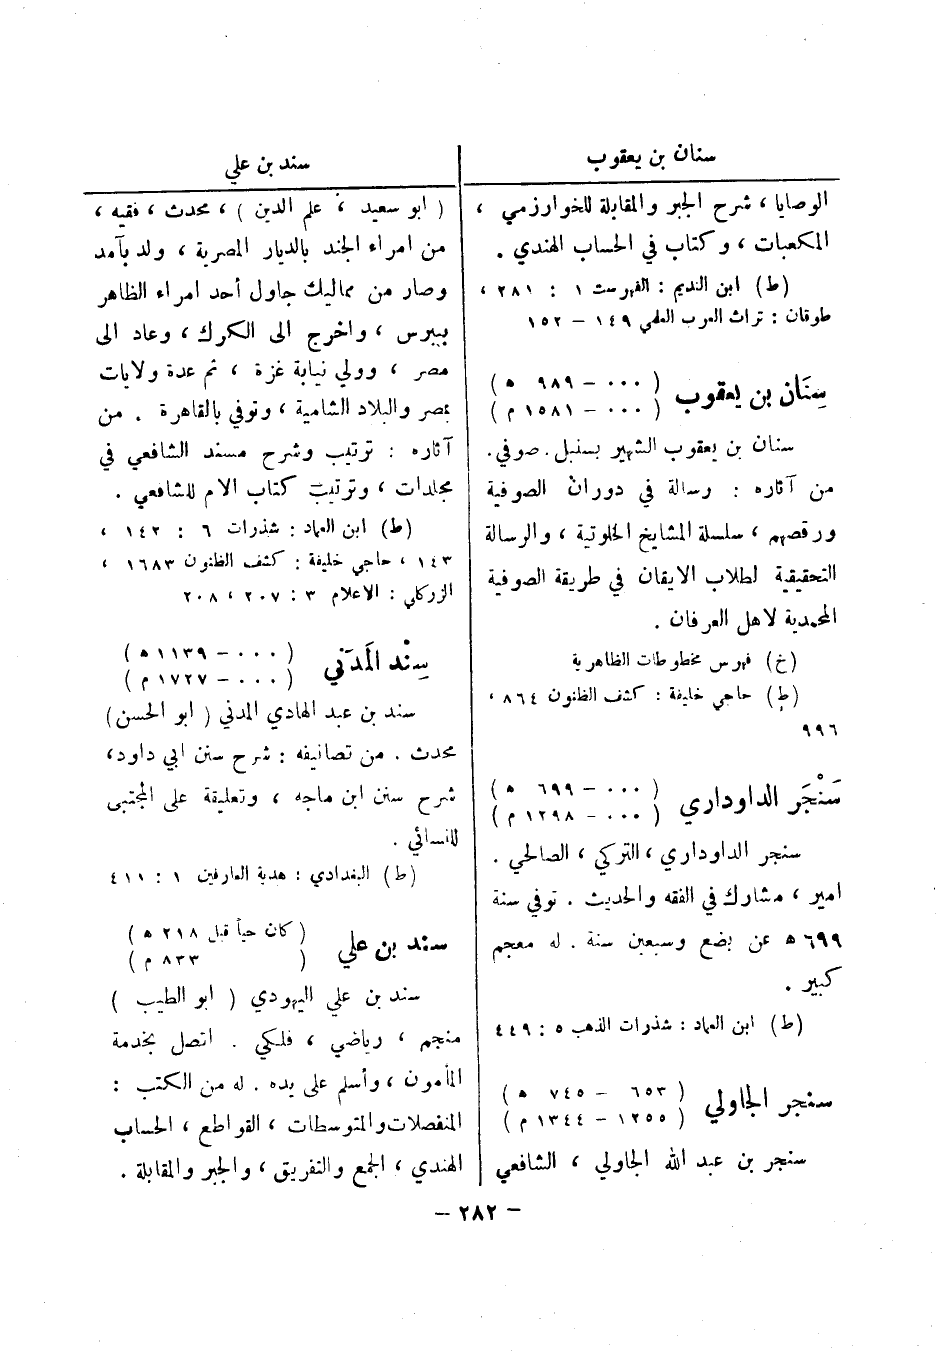 سنان بن يعقوب
الوصايا ، شرح الجبر والمقابلة للخوارزمي ،
المكعبات ، وكتاب في الحساب الهندي .
(ط) ابن النديم : الفهرست ١ : ٢٨١ ،
طوقان : تراث العرب العلمي ١٤٩ – ١٥٢
سِنَان بن يعقوب ( ٠٠٠ – ٩٨٩ ه )
( ٠٠٠ – ١٥٨١ م )
سنان بن يعقوب الشهير بسنبل . صوفي .
من آثاره : رسالة في دوران الصوفية
ورقصهم ، سلسلة المشايخ الخلوتية ، والرسالة
التحقيقية لطلاب الايقان في طريقة الصوفية
المحمدية لاهل العرفان .
(خ) فهرس مخطوطات الظاهرية
(ط) حاجي خليفة : كشف الظنون ٨٦٤ ،
٩٩٦
سَنْجَر الداوداري ( ٠٠٠ – ٦٩٩ ه )
( ٠٠٠ – ١٢٩٨ م )
سنجر الداوداري ، التركي ، الصالحي .
امير ، مشارك في الفقه والحديث . توفي سنة
٦٩٩ ه عن بضع وسبعين سنة . له معجم
كبير .
(ط) ابن العماد : شذرات الذهب ٥ : ٤٤٩
سنجر الجاولي ( ٦٥٣ – ٧٤٥ ه )
( ١٢٥٥ – ١٣٤٤ م )
سنجر بن عبد الله الجاولي ، الشافعي
سند بن علي
( ابو سعيد ، علم الدين ) ، محدث ، فقيه ،
من امراء الجند بالديار المصرية ، ولد بآمد
وصار من مماليك جاول أحد امراء الظاهر
بيبرس ، واخرج الى الكرك ، وعاد الى
مصر ، وولي نيابة غزة ، ثم عدة ولايات
بمصر والبلاد الشامية ، وتوفي بالقاهرة . من
آثاره : ترتيب وشرح مسند الشافعي في
مجلدات ، وترتيب كتاب الام للشافعي .
(ط) ابن العماد : شذرات ٦ : ١٤٢ ،
١٤٣ ، حاجي خليفة : كشف الظنون ١٦٨٣ ،
الزركلي : الاعلام ٣ : ٢٠٧ ، ٢٠٨
سِنْد المَدَني ( ٠٠٠ – ١١٣٩ ه )
( ٠٠٠ – ١٧٢٧ م )
سند بن عبد الهادي المدني ( ابو الحسن )
محدث . من تصانيفه : شرح سنن ابي داود ،
شرح سنن ابن ماجه ، وتعليقة على المجتبى
للنسائي .
(ط) البغدادي : هدية العارفين ١ : ٤١١
سند بن علي ( كان حياً قبل ٢١٨ ه )
( ٨٣٣ م )
سند بن علي اليهودي ( ابو الطيب )
منجم ، رياضي ، فلكي . اتصل بخدمة
المأمون ، وأسلم على يده . له من الكتب :
المنفصلات والمتوسطات ، القواطع ، الحساب
الهندي ، الجمع والتفريق ، والجبر والمقابلة .
– ٢٨٢ –